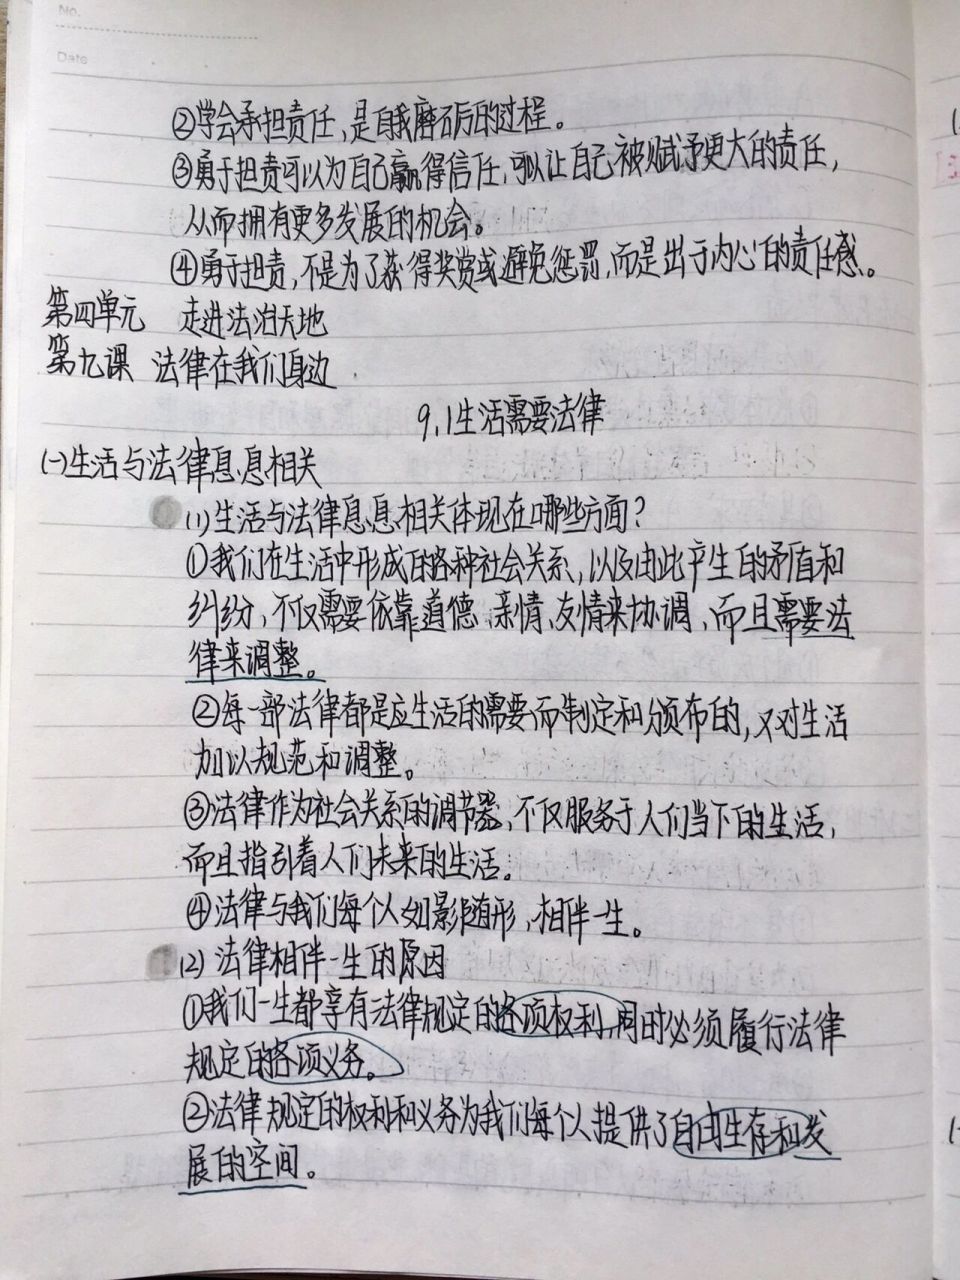 No.
Date
②学会承担责任,是自我磨砺的过程。
③勇于担责可以为自己赢得信任,可以让自己被赋予更大的责任,
从而拥有更多发展的机会。
④勇于担责,不是为了获得奖赏或避免惩罚,而是出于内心的责任感。
第四单元 走进法治天地
第九课 法律在我们身边
9.1生活需要法律
(一)生活与法律息息相关
(1)生活与法律息息相关体现在哪些方面?
①我们在生活中形成的各种社会关系,以及由此产生的矛盾和
纠纷,不仅需要依靠道德、亲情、友情来协调,而且需要法
律来调整。
②每一部法律都是应生活的需要而制定和颁布的,又对生活
加以规范和调整。
③法律作为社会关系的调节器,不仅服务于人们当下的生活,
而且指引着人们未来的生活。
④法律与我们每个人如影随形,相伴一生。
(2)法律相伴一生的原因
①我们一生都享有法律规定的各项权利,同时必须履行法律
规定的各项义务。
②法律规定的权利和义务为我们每个人提供了自由生存和发
展的空间。